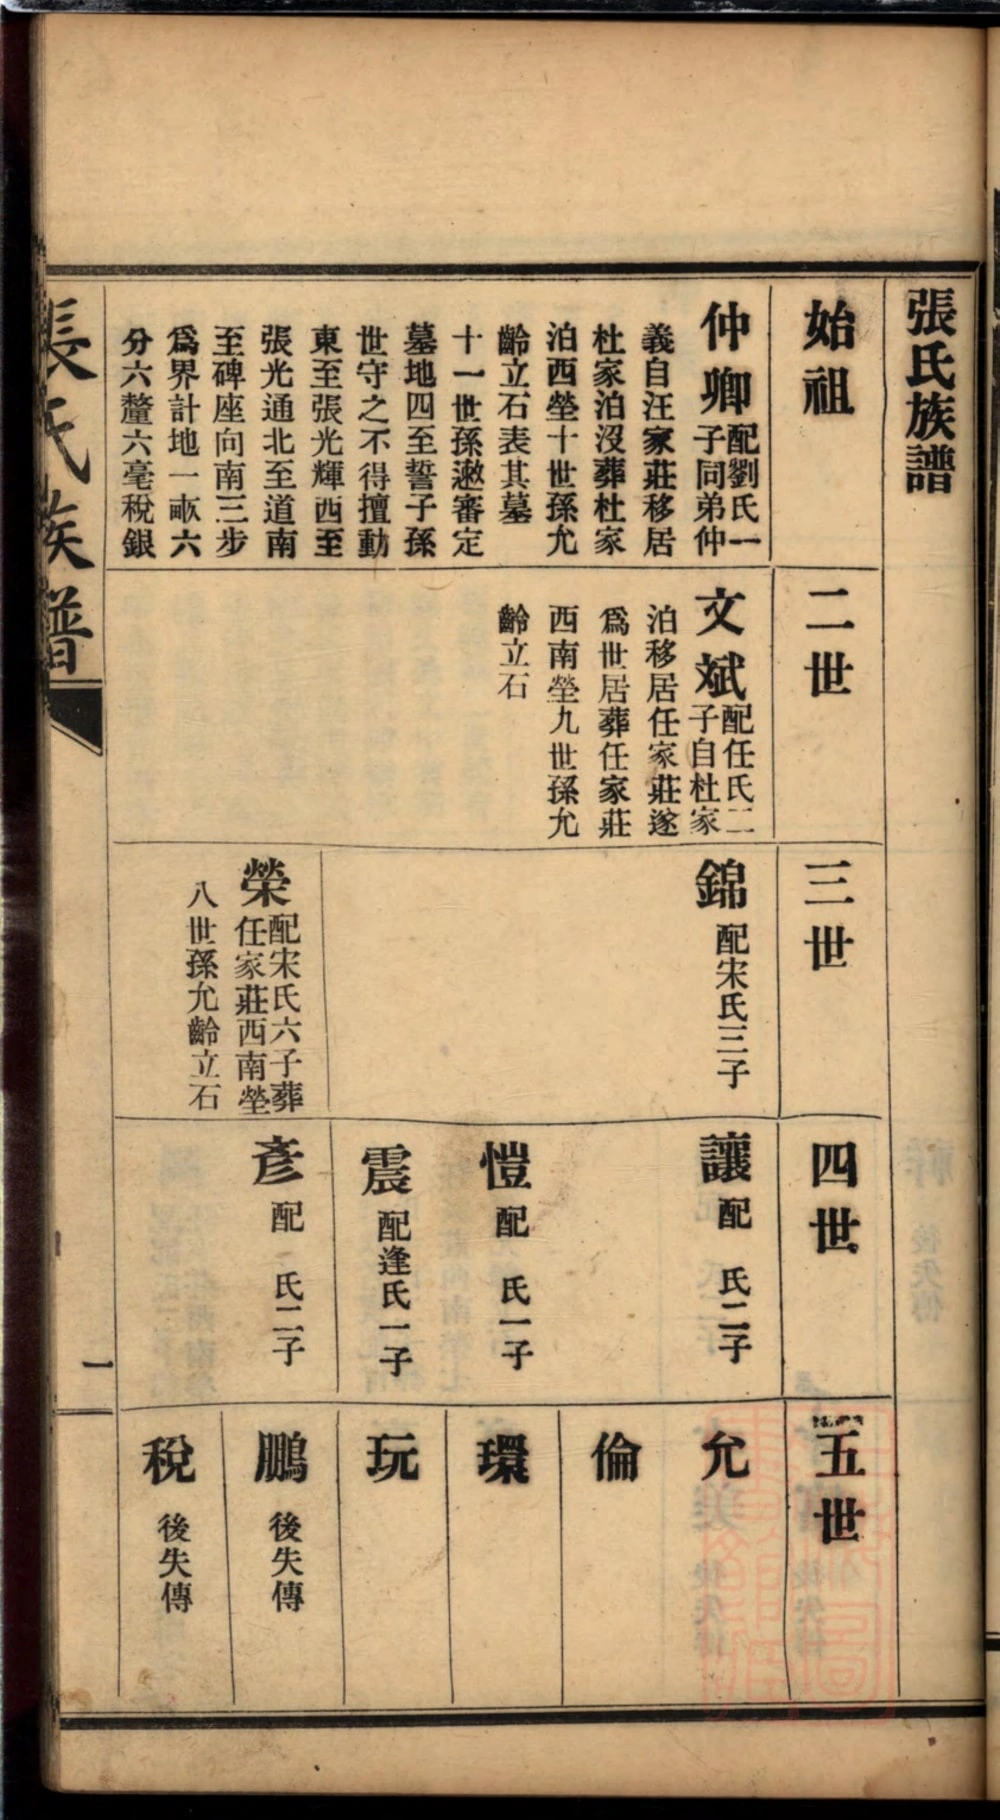 張氏族譜
始祖
仲卿配劉氏一
子同弟仲
義自汪家莊移居
杜家泊沒葬杜家
泊西塋十世孫允
齡立石表其墓
十一世孫遬審定
墓地四至誓子孫
世守之不得擅動
東至張光輝西至
張光通北至道南
至碑座向南三步
爲界計地一畝六
分六釐六毫稅銀
二世
文斌配任氏二
子自杜家
泊移居任家莊遂
爲世居葬任家莊
西南塋九世孫允
齡立石
三世
錦 配宋氏三子
榮配宋氏六子葬
任家莊西南塋
八世孫允齡立石
四世
讓 配 氏二子
愷 配 氏一子
震 配逄氏一子
彥 配 氏二子
五世
允
倫
環
玩
鵬 後失傳
稅 後失傳
張氏族譜
一